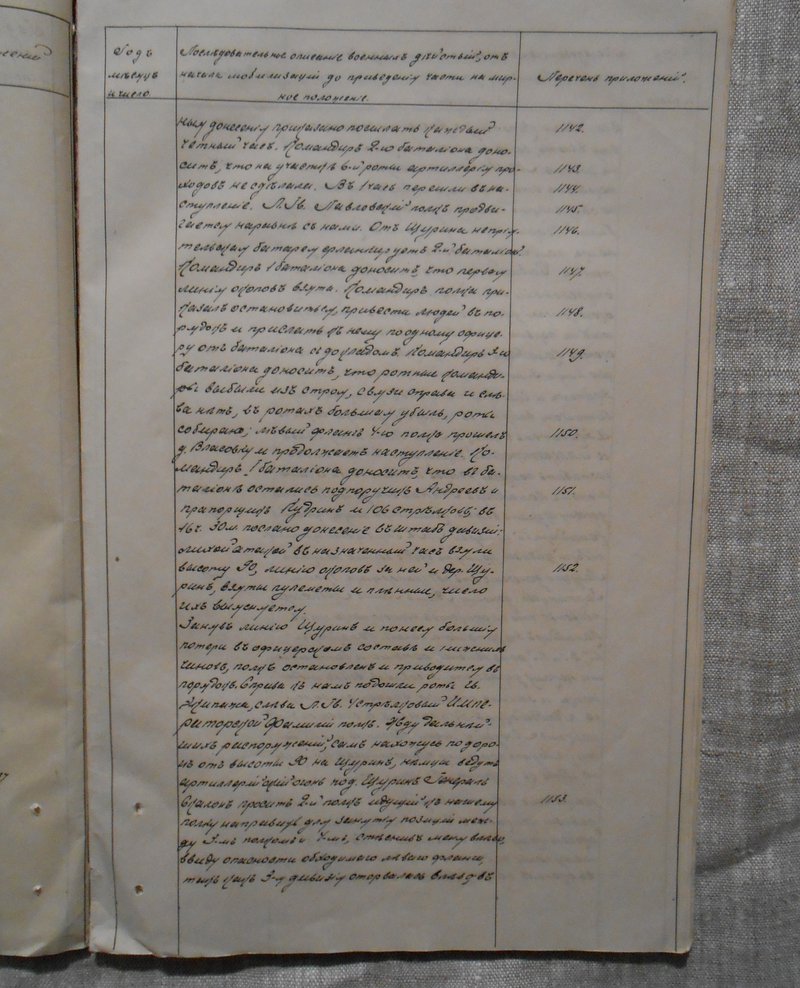 Годъ
мѣсяцъ
и число.
Послѣдовательное описаніе военныхъ дѣйствій, отъ
начала мобилизаціи до приведенія части на мир-
ное положеніе.
Перечень приложеній.
нымъ донесенія приказано посылать каждый
1142.
четный часъ. Командиръ 2-го баталіона доно-
ситъ, что на участкѣ 6-й роты артиллерія про-
1143.
ходовъ не сдѣлала. Въ 1 часъ перешли въ на-
1144.
ступленіе. Л.Гв. Павловскій полкъ продви-
1145.
гается наравнѣ съ нами. Отъ Щурина непрія-
1146.
тельская батарея фланкируетъ 2-й баталіон.
Командиръ 1 баталіона доноситъ, что первая
1147.
линія окоповъ взята. Командиръ полка при-
казалъ остановиться, привести людей въ по-
1148.
рядокъ и прислать къ нему по одному офице-
ру отъ баталіона съ докладомъ. Командиръ 3-го
1149.
баталіона доноситъ, что ротные команди-
ры выбыли изъ строя, связи справа и слѣ-
ва нѣтъ, въ ротахъ большая убыль, роты
собираю; лѣвый флангъ 4-го полка прошелъ
1150.
д. Власовку и продолжаетъ наступленіе. Ко-
мандиръ 1 баталіона доноситъ, что въ ба-
таліонѣ остались подпоручикъ Андреевъ и
1151.
прапорщикъ Кудринъ и 106 стрѣлковъ; въ
16 ч. 30 м. послано донесеніе въ штабъ дивизіи:
лихой атакой въ назначенный часъ взяли
высоту 90, линію окоповъ за ней и дер. Щу-
1152.
ринъ, взяты пулеметы и плѣнные, число
ихъ выясняется.
Занявъ линію Щуринъ и понеся большія
потери въ офицерскомъ составѣ и нижнихъ
чиновъ, полкъ остановленъ и приводится въ
порядокъ. Справа къ намъ подошли роты Гв.
Экипажа, слѣва Л.Гв. 4 Стрѣлковый Импе-
раторской Фамиліи полкъ. Жду дальнѣй-
шихъ распоряженій, самъ нахожусь по доро-
гѣ отъ высоты 90 на Щуринъ, нѣмцы ведутъ
артиллерійскій огонь под. Щуринъ. Генералъ
Скалонъ проситъ 2-й полкъ идущій къ нашему
1153.
полку направить для занятія позиціи меж-
ду 3-мъ полкомъ и 4-мъ, вправо
ввиду опасности обходимого лѣваго фланга,
такъ какъ 3-я дивизія оторвалась влѣво въ